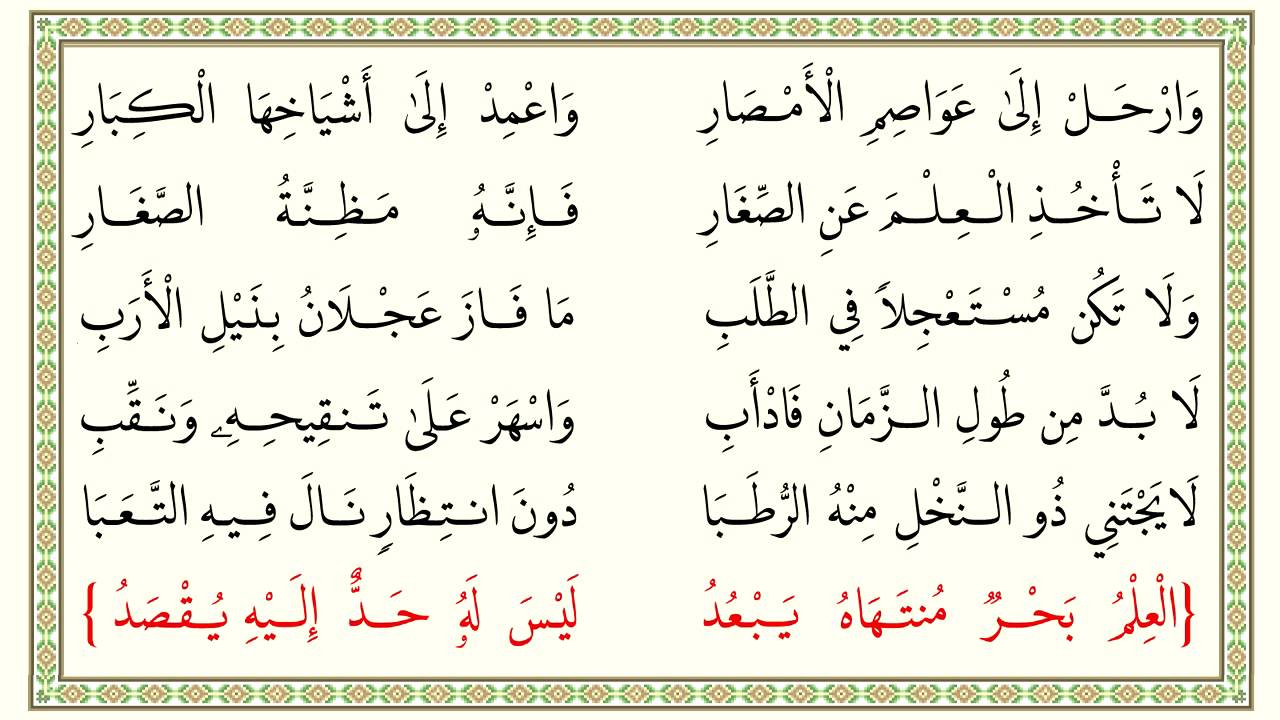 وَارْحَلْ إِلَىٰ عَوَاصِمِ الْأَمْصَارِ وَاعْمِدْ إِلَىٰ أَشْيَاخِهَا الْكِبَارِ
لَا تَأْخُذِ الْعِلْمَ عَنِ الصِّغَارِ فَإِنَّهُۥ مَظِنَّةُ الصَّغَارِ
وَلَا تَكُن مُسْتَعْجِلاً فِي الطَّلَبِ مَا فَازَ عَجْلَانُ بِنَيْلِ الْأَرَبِ
لَا بُدَّ مِن طُولِ الزَّمَانِ فَادْأَبِ وَاسْهَرْ عَلَىٰ تَنقِيحِهِۦ وَنَقِّبِ
لَا يَجْتَنِي ذُو النَّخْلِ مِنْهُ الرُّطَبَا دُونَ انتِظَارٍ نَالَ فِيهِ التَّعَبَا
{الْعِلْمُ بَحْرٌ مُنتَهَاهُ يَبْعُدُ لَيْسَ لَهُۥ حَدٌّ إِلَيْهِ يُقْصَدُ}